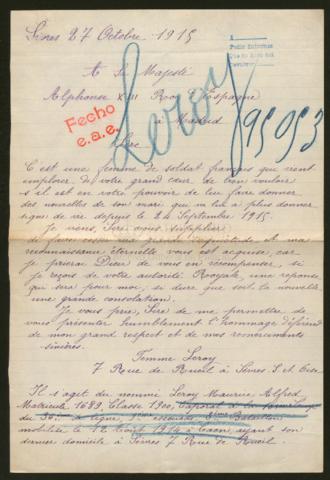 Sèvres 27 Octobre 1915
A Sa Majesté
Alphonse XIII Roy d'Espagne
à Madrid
Fecho
e.a.e.
Leroy
95053
Sire
C'est une femme de soldat français qui vient
implorer de votre grand cœur de bien vouloir
s'il est en votre pouvoir de lui faire donner
des nouvelles de son mari qui n'a plus donner
signe de vie depuis le 24 Septembre 1915.
Je viens, Sire vous supplier
de faire et ma
reconnaissance éternelle vous est acquise, car
je prierai Dieu de vous en récompenser, si
je reçois de votre autorité Royale, une réponse
qui sera pour moi, si dure que soit la nouvelle
une grande consolation.
Je vous prie, Sire de me permettre de
vous présenter humblement l'hommage
de mon grand respect et de mes remerciements
sincères.
Femme Leroy
7 Rue de Rueil à Sèvres S. et Oise
Il s'agit du nommé Leroy Maurice Alfred
Matricule 1689, Classe 1900, Caporal à la
du de ligne, Bataillon
mobilisé le 12 Août 1914 à Caen, ayant son
dernier domicile à Sèvres 7 Rue de Rueil.